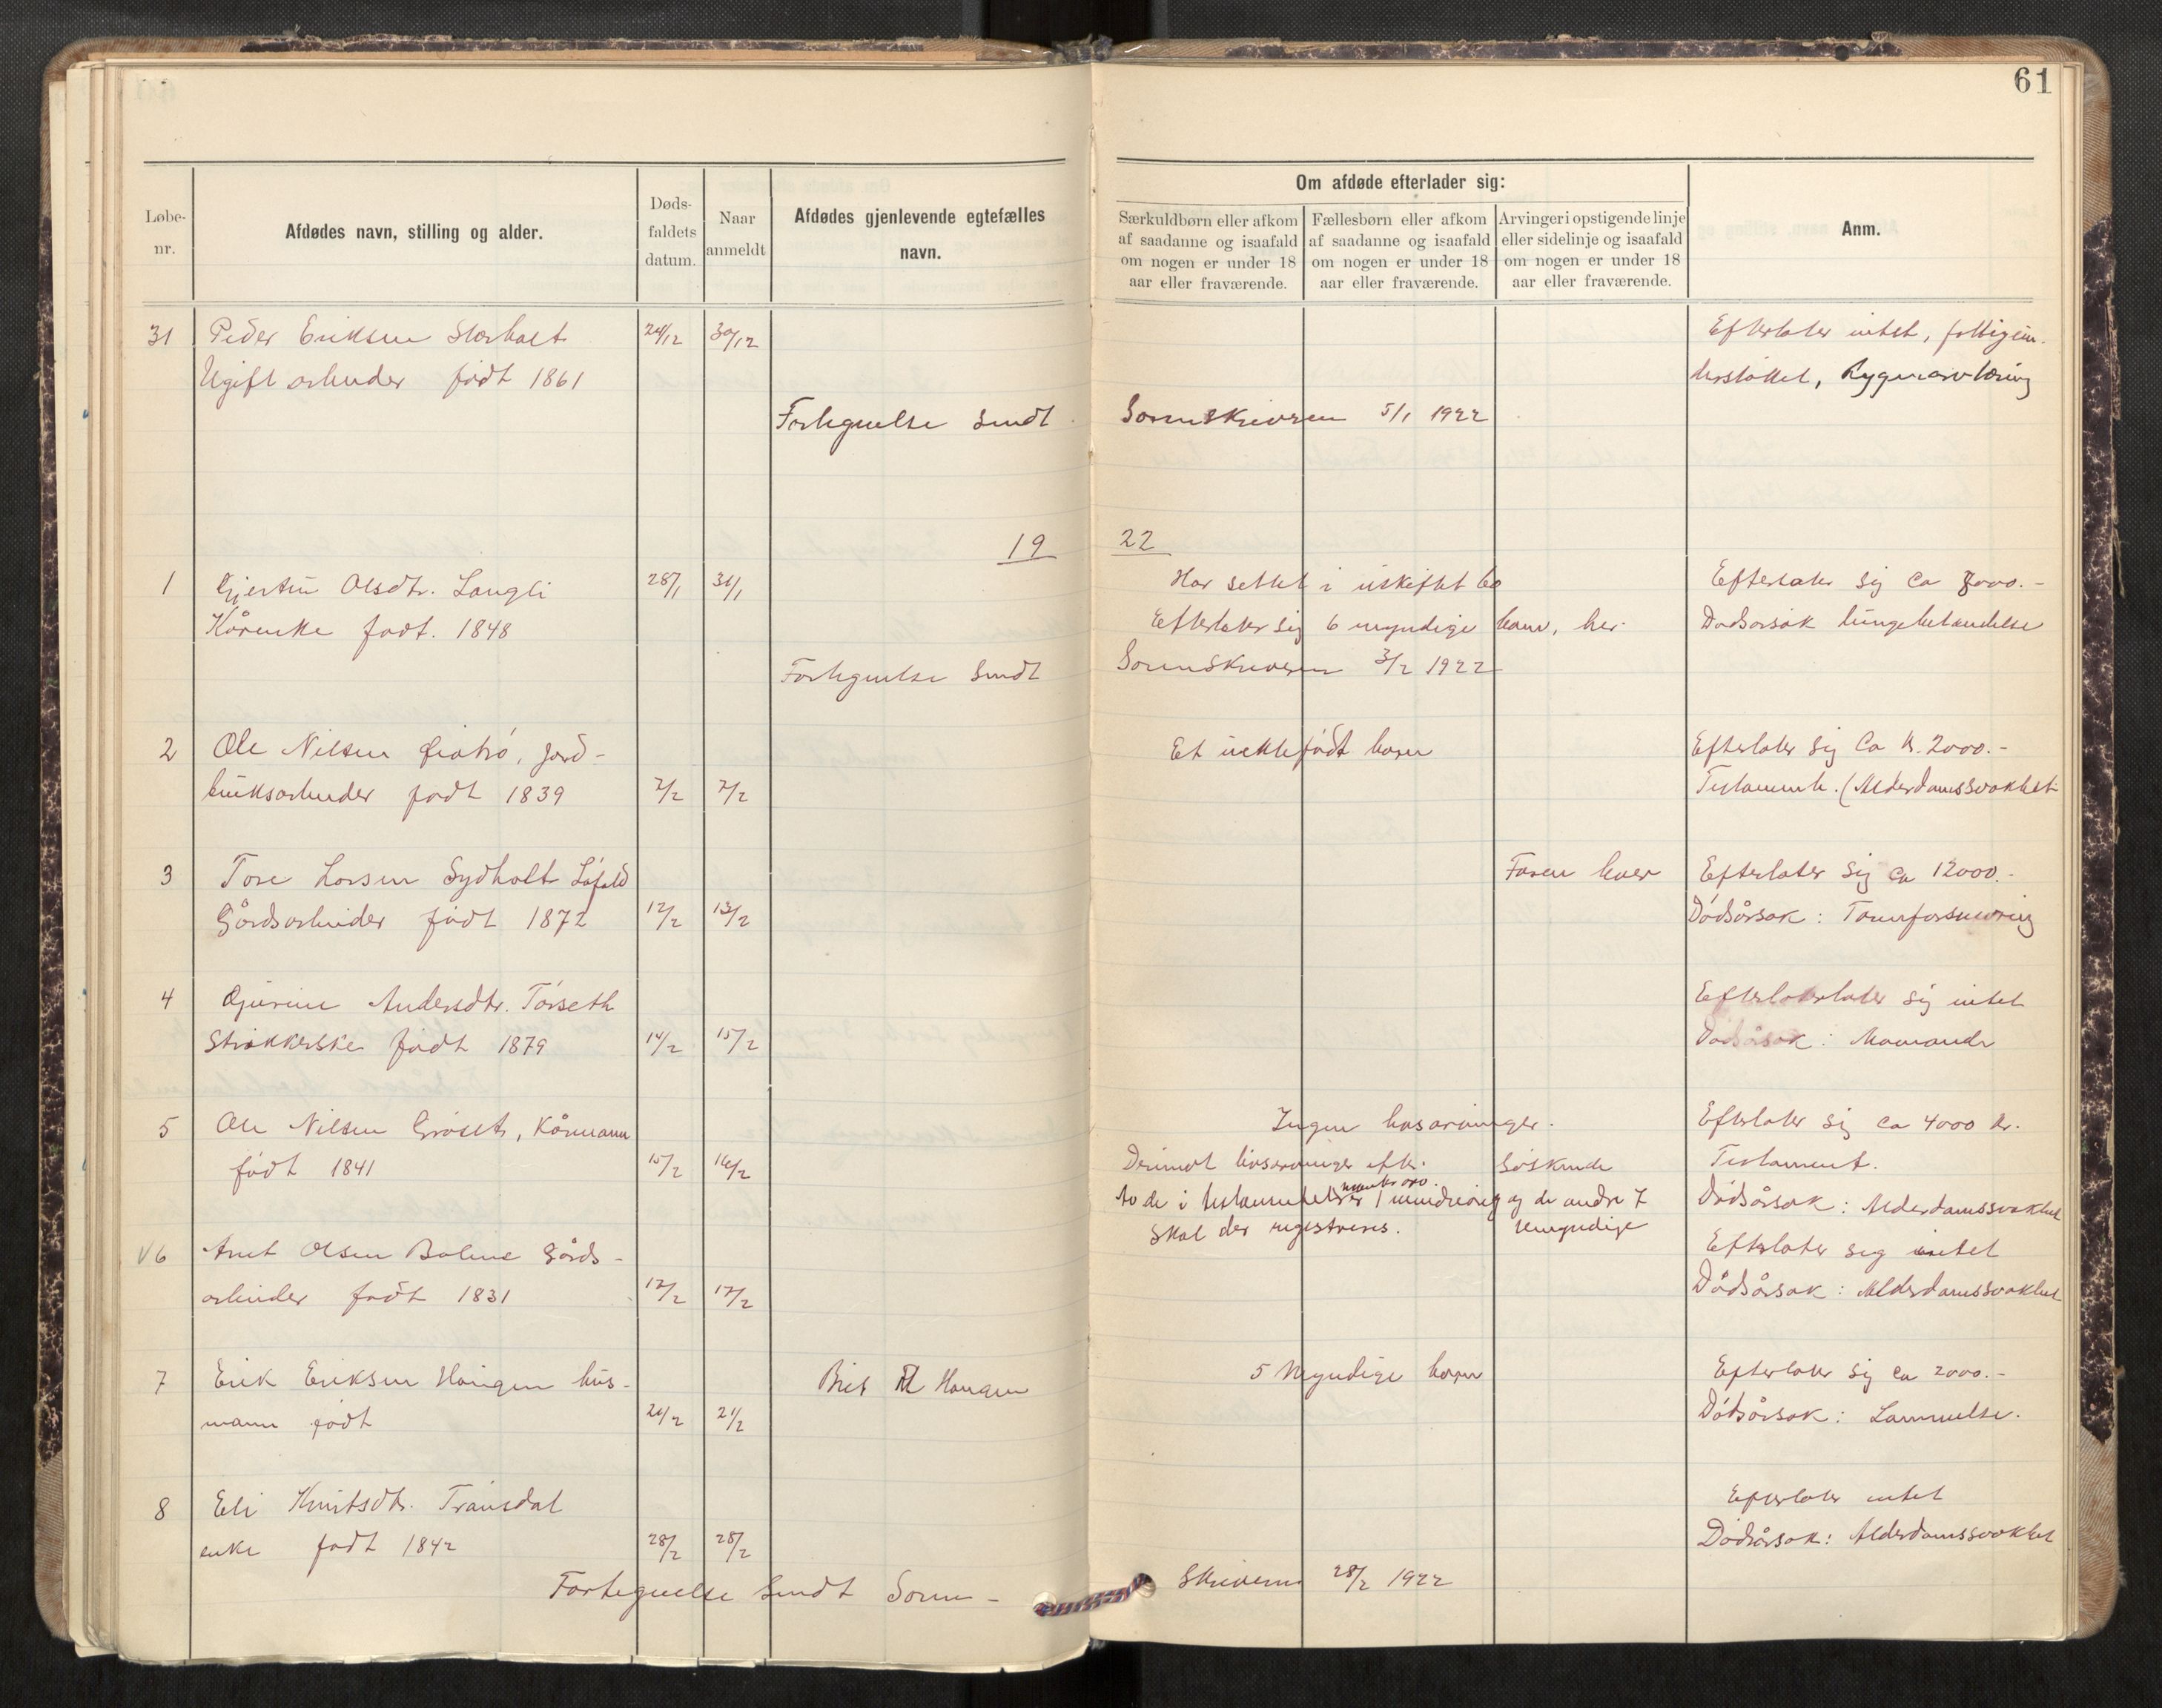 61
Løbe-nr.
Afdødes navn, stilling og alder.
Døds-faldets datum.
Naar anmeldt
Afdødes gjenlevende egtefælles navn.
Om afdøde efterlader sig:
Særkuldbørn eller afkom af saadanne og isaafald om nogen er under 18 aar eller fraværende.
Fællesbørn eller afkom af saadanne og isaafald om nogen er under 18 aar eller fraværende.
Arvinger i opstigende linje eller sidelinje og isaafald om nogen er under 18 aar eller fraværende.
Anm.
31 Peder Eriksen 24/12 30/12 Efterlater intet,
Ugift arbeider født 1861
Fortegnelse sendt Sorenskriveren 5/1 1922
19 22
1 Olsdtr. Langli 28/1 31/1 Har sittet i uskiftet bo Efterlater sig ca 8000.-
Kårenke født. 1848 Efterlater sig 6 myndige barn, her. Dødsårsak lungebetændelse
Fortegnelse sendt Sorenskriveren 3/2 1922
2 Ole Nilsen jord- Et uektefødt barn Efterlater sig Ca kr. 2000.-
bruksarbeider født 1839 7/2 7/2 Testamente. (Alderdomssvakhet
3 Tore Larsen Sydholt Faren lever Efterlater sig ca 12000.-
Gårdsarbeider født 1872 12/2 13/2 Dødsårsak: Tarmforsnevring
4 Gjurine Andersdtr. Tørseth Efterlater sig intet
Strikkerske født 1879 14/2 15/2 Dødsårsak:
5 Ole Nilsen Grøset, Kårmann Ingen livsarvinger. Efterlater sig ca 4000 kr.
født 1841 15/2 16/2 Derimot livsarvinger efter Søskende Testament.
to de i testamentet 1 mindreårig og de andre 7 Dødsårsak: Alderdomssvakhet
skal der registreres. myndige
6 Arnt Olsen Bolme Gårds- Efterlater sig intet
arbeider født 1831 17/2 17/2 Dødsårsak: Alderdomssvakhet
7 Erik Eriksen Haugen hus- Brit Haugen 5 Myndige barn Efterlater sig ca 2000.-
mann født 21/2 21/2 Dødsårsak: Lammelse.
8 Eli Knutsdtr. Efterlater intet
enke født 1842 28/2 28/2 Dødsårsak: Alderdomssvakhet
Fortegnelse sendt Soren- Skriveren 28/2 1922